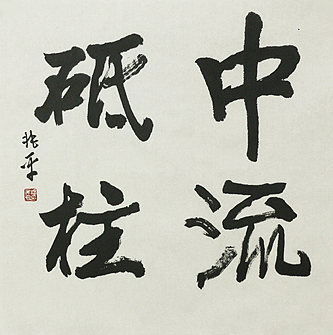 中流
砥柱
振平